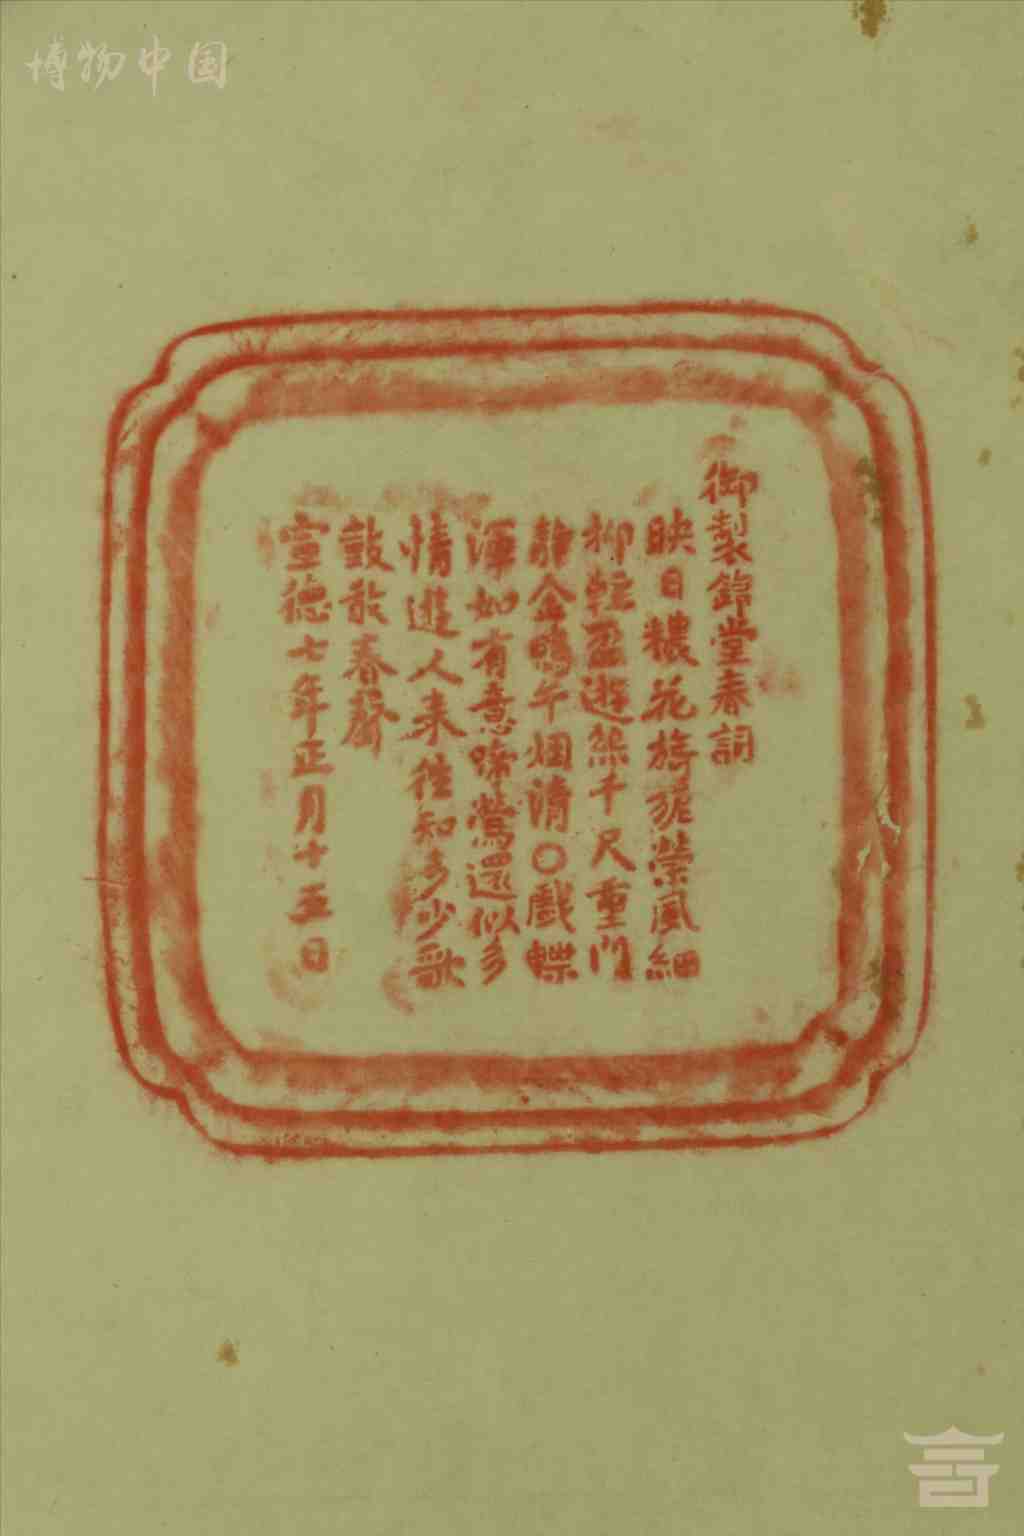 博物中国
御製錦堂春詞
映日穠花旖旎縈風細
柳輕盈遊絲千尺重門
靜金鴨午烟清〇戲蝶
渾如有意啼鶯還似多
情遊人来徃知多少歌
鼓散春聲
宣德七年正月十五日